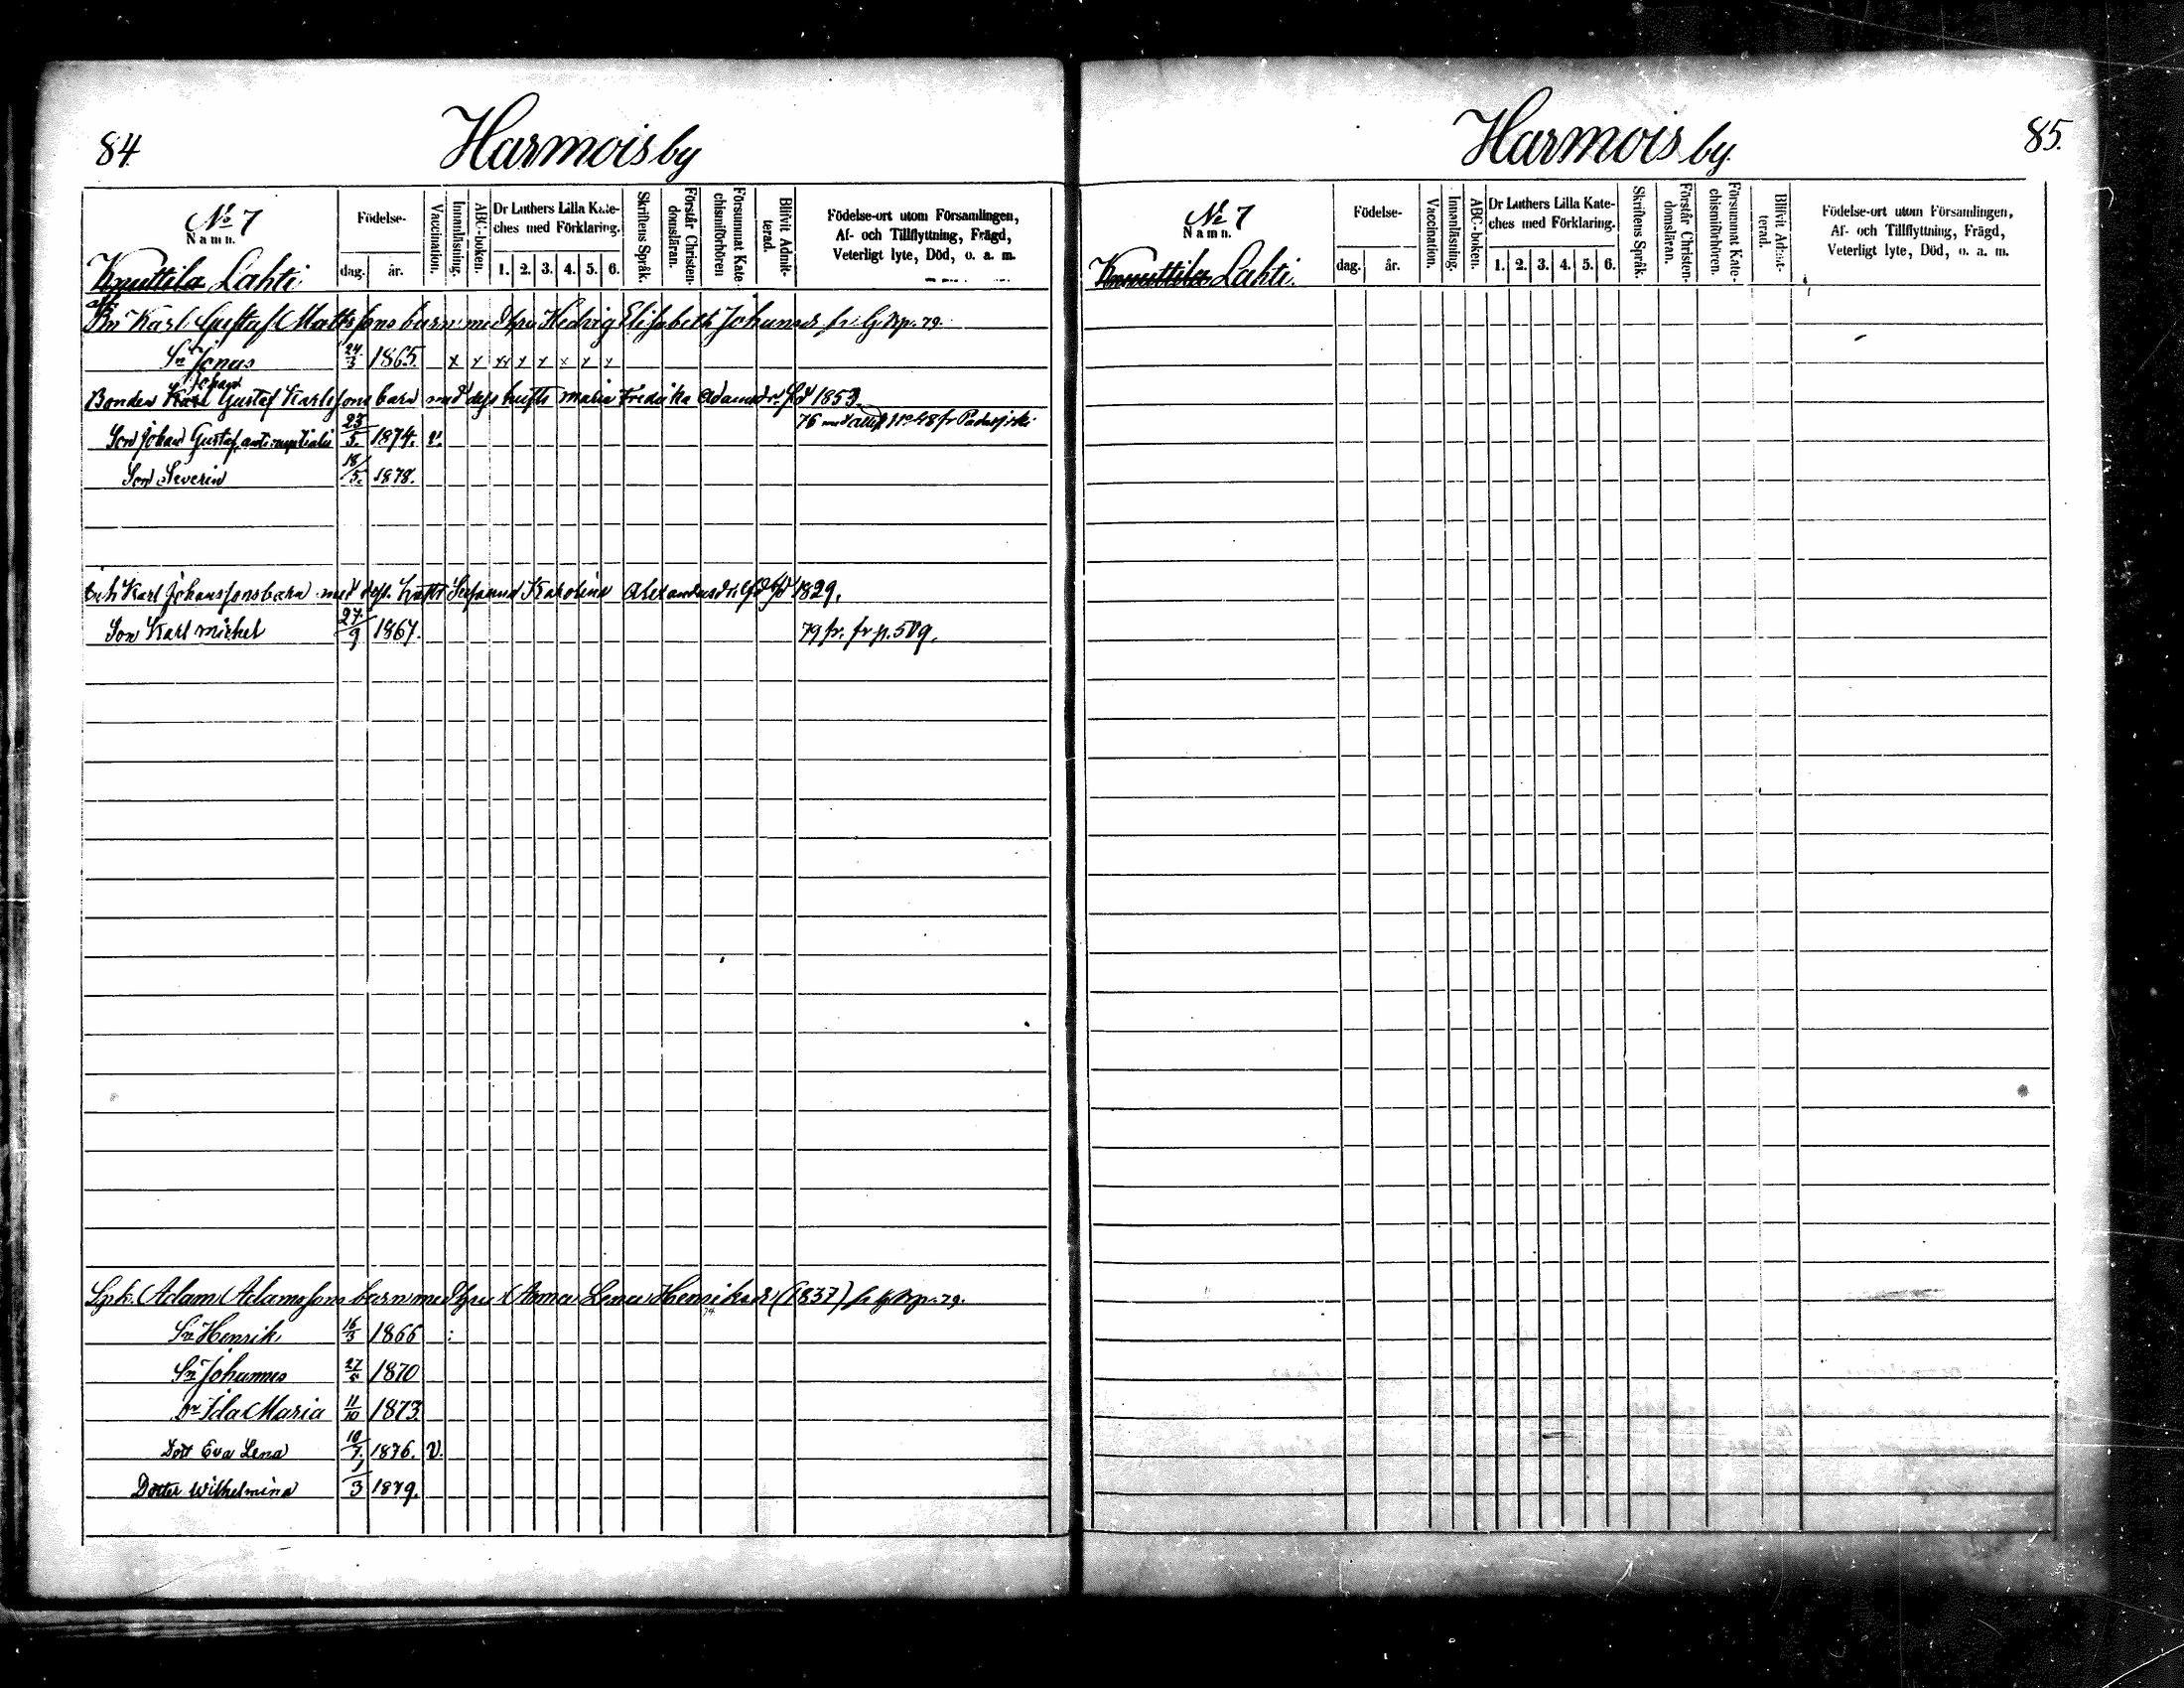 84.
Harmois by
№ 7
Namn.
Knuttila Lahti
Födelse-
dag.
år.
Vaccination.
Innanläsning.
ABC-boken.
Dr Luthers Lilla Kate-
ches med Förklaring.
1. 2. 3. 4. 5. 6.
Skriftens Språk.
Förstår Christen-
domsläran.
Försummat Kate-
chismiförhören
Blifvit Admit-
terad.
Födelse-ort utom Församlingen,
Af- och Tillflyttning, Frägd,
Veterligt lyte, Död, o. a. m.
Karl Gustaf Mattssons barn med hu Hedvig Elisabeth Johansdr fr p. 79.
Sn Jonas 24/3 1865. x x x x x x x x
Johan
Bonden Karl Gustaf Karlssons barn med dess hustr Maria Fredrika Adamsdr fd 1853.
Son Johan Gustaf, antenuptialis 23/5. 1874. v. 76 med att N:o 48 fr Padasjoki
Son Severin 18/5. 1878.
Karl Johanssons barn med dess hustr Susanna Karolina Alexandersdr fd 1829.
Son Karl Michel 27/9 1867. 79 fr. fr p. 509.
Spk. Adam Adamssons barn med hu Anna Lena Henriksdr (1837) fr p. 79.
Sn Henrik 16/3 1866
Sn Johannes 27/5 1870
Dr Ida Maria 11/10 1873
Dott Eva Lena 10/7. 1876. V.
Dotter Wilhelmina 1/3 1879.
Harmois by.
85.
№ 7
Namn.
Knuttila Lahti.
Födelse-
dag.
år.
Vaccination.
Innanläsning.
ABC-boken.
Dr Luthers Lilla Kate-
ches med Förklaring.
1. 2. 3. 4. 5. 6.
Skriftens Språk.
Förstår Christen-
domsläran.
Försummat Kate-
chismiförhören.
Blifvit Admit-
terad.
Födelse-ort utom Församlingen,
Af- och Tillflyttning, Frägd,
Veterligt lyte, Död, o. a. m.